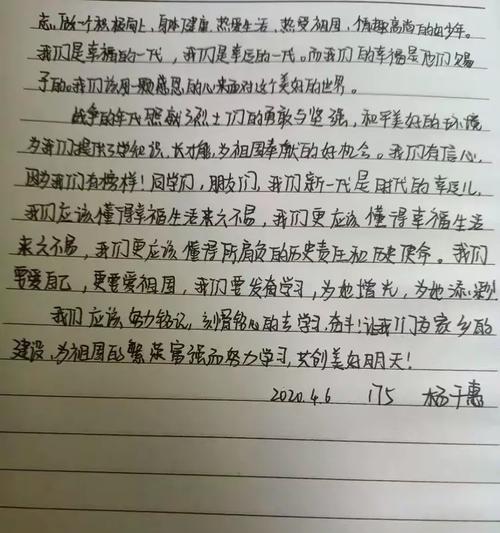 志，做一个积极向上，身体健康，热爱生活，热爱祖国，情趣高尚的好少年。
我们是幸福的一代，我们是幸运的一代。而我们的幸福是他们赐
予的。我们该用一颗感恩的心来面对这个美好的世界。
战争的年代照献了烈士们的勇敢与坚强，和平美好的环境
为我们提供了学知识，长才能，为祖国奉献的好机会。我们有信心，
因为我们有榜样！同学们，朋友们，我们新一代是时代的幸运儿，
我们应该懂得幸福生活来之不易，我们更应该懂得幸福生活
来之不易，我们更应该懂得所肩负的历史责任和历史使命。我们
要爱自己，更要爱祖国，我们要发奋学习，为她增光，为她添彩！
我们应该努力铭记，刻骨铭心的去学习，奋斗！让我们为家乡的
建设，为祖国的繁荣富强而努力学习，共创美好明天！
2020.4.6 175 杨千惠